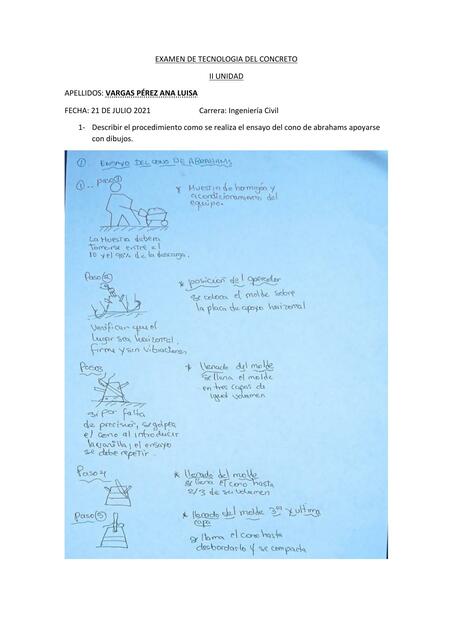 EXAMEN DE TECNOLOGIA DEL CONCRETO
II UNIDAD
APELLIDOS: VARGAS PÉREZ ANA LUISA
FECHA: 21 DE JULIO 2021 Carrera: Ingeniería Civil
1- Describir el procedimiento como se realiza el ensayo del cono de abrahams apoyarse
con dibujos.
① ENSAYO DEL CONO DE ABRAHAMS
①.. paso①
* Muestra de hormigón y
acondicionamiento del
equipo.
La Muestra debera
tomarse entre el
10 y el 90% de la descarga.
Paso②
* posicion del operador
se coloca el molde sobre
la placa de apoyo horizontal
Verificar que el
lugar sea horizontal,
firme y sin vibraciones
Paso3
* llenado del molde
se llena el molde
en tres capas de
igual volumen
si por falta
de precisión, se golpea
el cono al introducir
la varilla, el ensayo
se debe repetir.
Paso4
* llenado del molde
se llena el cono hasta
2/3 de su volumen
Paso⑤
* llenado del molde 3ra y ultima
capa
se llena el cono hasta
desbordarlo y se compacta